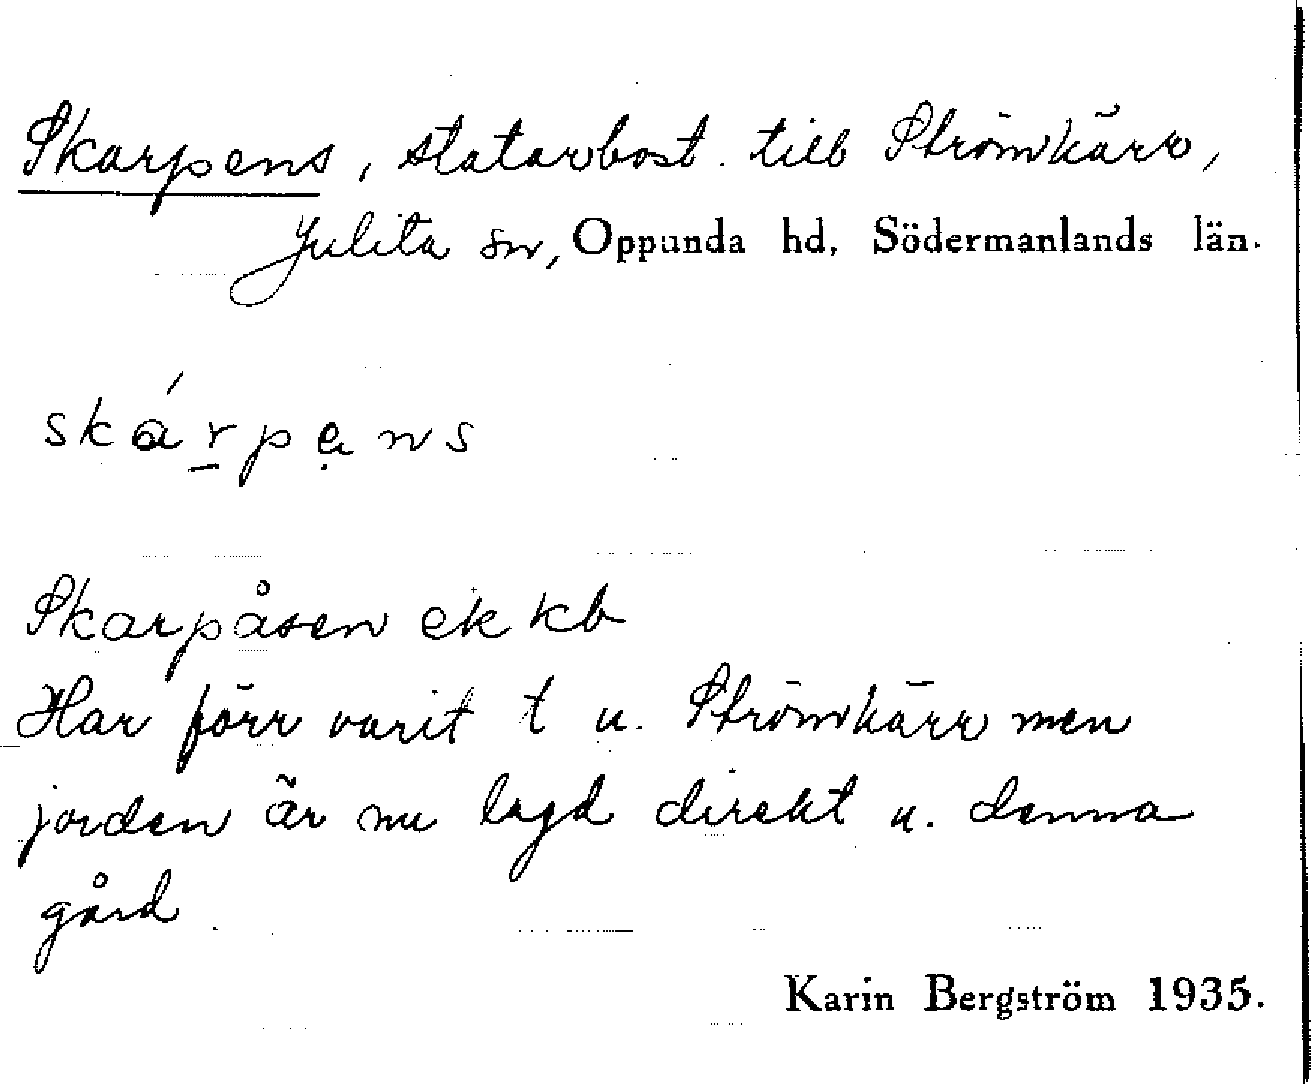 Skarpens, statarbost. till Strömkärr,
Julita sn, Oppunda hd, Södermanlands län.
skárpans
Skarpåsen ek kb
Har förr varit t u. Strömkärr men
jorden är nu lagd direkt u. denna
gård
Karin Bergström 1935.